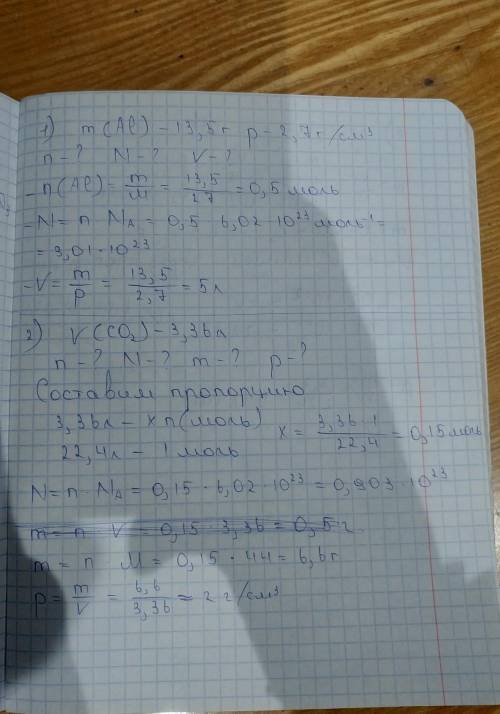 1) m(Al) – 13,5 г p – 2,7 г/см³
n – ? N – ? V – ?
– n(Al) = m/M = 13,5/27 = 0,5 моль
– N = n · NA = 0,5 · 6,02 · 10²³ моль⁻¹ =
= 3,01 · 10²³
– V = m/p = 13,5/2,7 = 5 л
2) V(CO₂) – 3,36 л
n – ? N – ? m – ? p – ?
Составим пропорцию
3,36 л – x n(моль)
22,4 л – 1 моль
x = 3,36 · 1/22,4 = 0,15 моль
N = n · NA = 0,15 · 6,02 · 10²³ = 0,903 · 10²³
m = n V = 0,15 · 3,36 = 0,5 г.
m = n M = 0,15 · 44 = 6,6 г
p = m/V = 6,6/3,36 = 2 г/см³